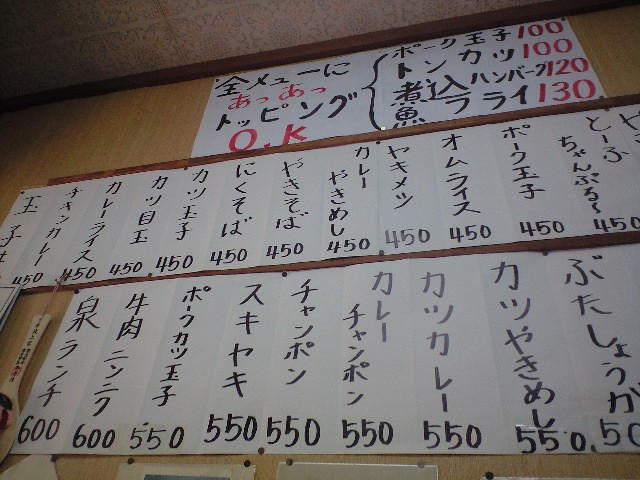 全メニューに
あっあっ
トッピング
O.K
ポーク玉子100
トンカツ100
煮込ハンバーグ120
魚フライ130
とーふちゃんぷる〜 450
ポーク玉子 450
オムライス 450
ヤキメシ 450
カレーやきめし 450
やきそば 450
にくそば 450
カツ玉子 450
カツ目玉 450
カレーライス 450
チキンカレー 450
玉子 450
ぶたしょうが 50
カツやきめし 550
カツカレー 550
カレーチャンポン 550
チャンポン 550
スキヤキ 550
ポークカツ玉子 550
牛肉ニンニク 600
泉ランチ 600